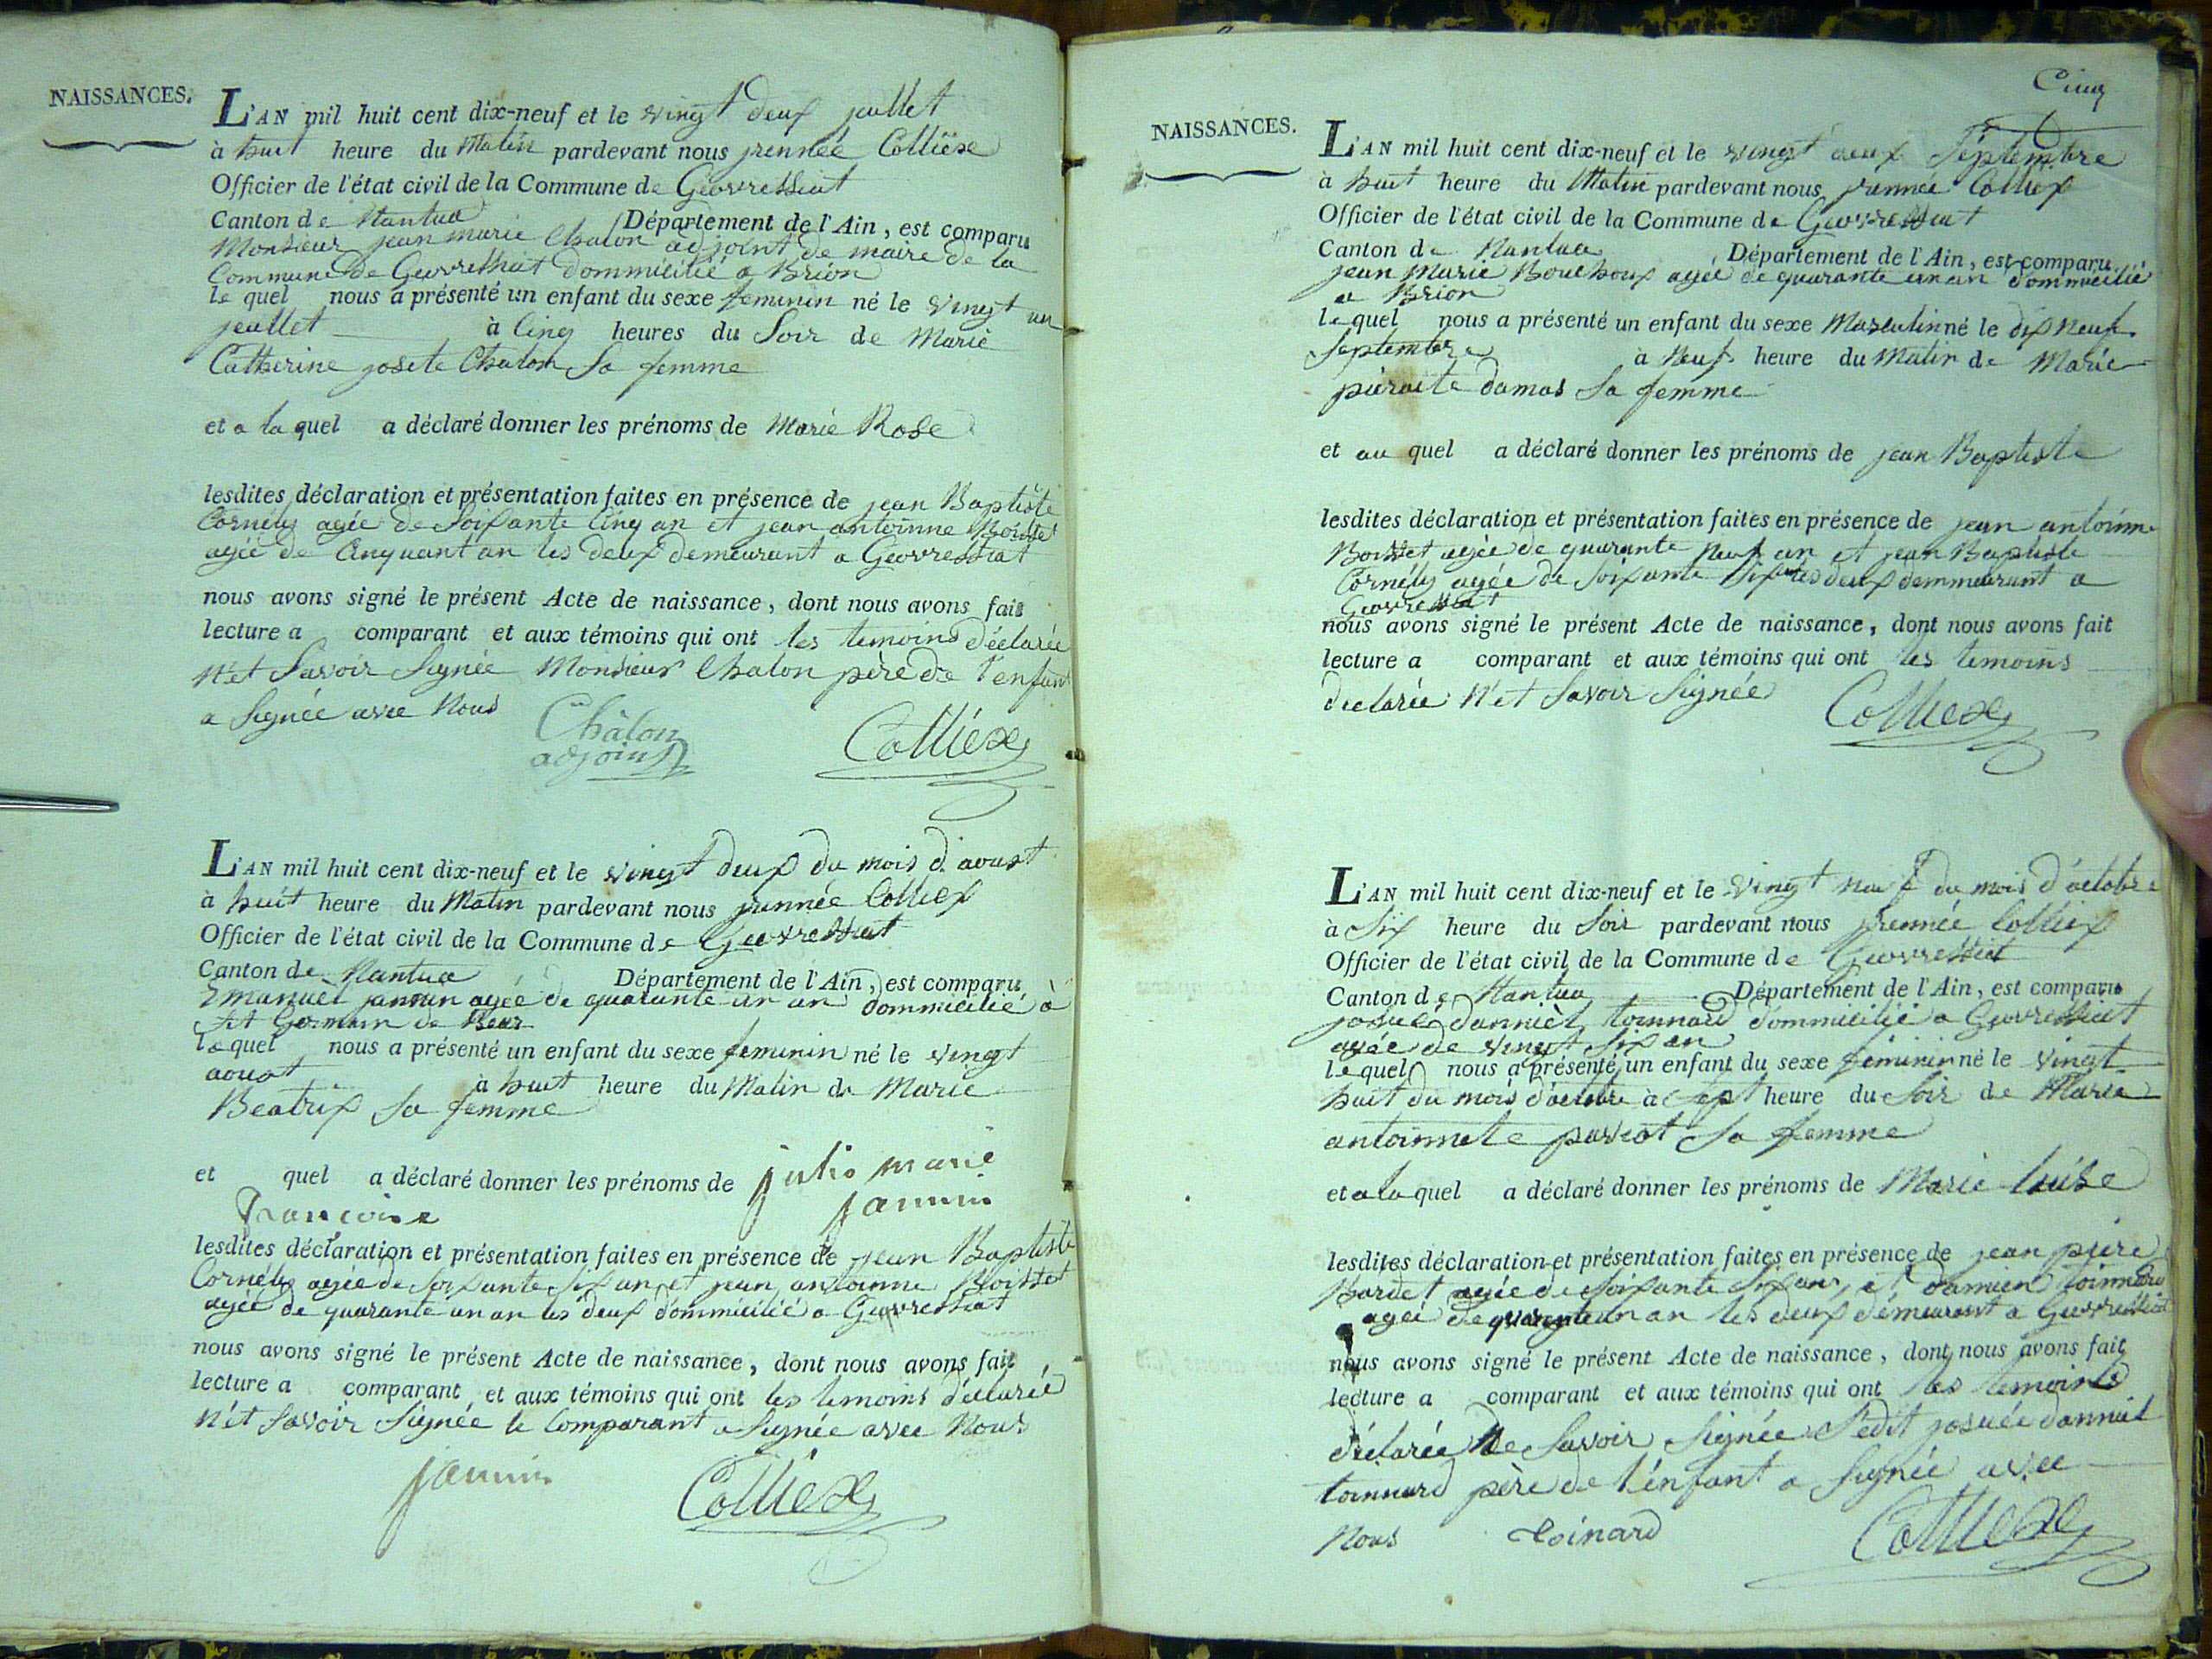 NAISSANCES.
L'AN mil huit cent dix-neuf et le vingt deux juillet
à huit heure du Matin pardevant nous jrennée Colliex
Officier de l'état civil de la Commune de Geovressiat
Canton de Nantua Département de l'Ain, est comparu
Monsieur jean marie Chalon adjoint de maire de la
Commune de Gevressiat dommicilié a Brion
le quel nous a présenté un enfant du sexe feminin né le vingt un
juillet à cinq heures du Soir de Marie
Catherine josete Chalon Sa femme
et a la quel a déclaré donner les prénoms de Marie Rose
lesdites déclaration et présentation faites en présence de jean Baptiste
Cornély agée de Soixante Cinq an et jean antoinne Boisset
agée de Cinquant an les deux demeurant a Geovressiat
nous avons signé le présent Acte de naissance, dont nous avons fait
lecture a comparant et aux témoins qui ont les temoins déclarée
n'et Savoir Signée Monsieur Chalon père de l'enfant
a Signée avec Nous
Châlon
adjoint
Colliex
L'AN mil huit cent dix-neuf et le vingt deux du mois d'aoust
à huit heure du Matin pardevant nous jrennée Colliex
Officier de l'état civil de la Commune de Geovressiat
Canton de Nantua Département de l'Ain, est comparu
Emanuel jannin agée de quarante un an dommicilié à
St Germain de Bear
le quel nous a présenté un enfant du sexe feminin né le vingt
aoust à huit heure du Matin de Marie
Beatrix Sa femme
et quel a déclaré donner les prénoms de julie marie
françoise jannin
lesdites déclaration et présentation faites en présence de jean Baptiste
Cornély agée de Soixante Six an et jean antoinne Boisset
agée de quarante un an les deux dommicilié a Gevressiat
nous avons signé le présent Acte de naissance, dont nous avons fait
lecture a comparant et aux témoins qui ont les temoins déclarée
n'et Savoir Signée le Comparant a Signée avec Nous
jannin
Colliex
Cinq
NAISSANCES.
L'AN mil huit cent dix-neuf et le vingt deux Septembre
à huit heure du Matin pardevant nous jrennée Colliex
Officier de l'état civil de la Commune de Geovressiat
Canton de Nantua Département de l'Ain, est comparu
jean Marie Bouchoux agée de quarante un an dommicilié
a Brion
le quel nous a présenté un enfant du sexe Masculin né le dix neuf
Septembre à Neuf heure du Matin de Marie
pieraite damas Sa femme
et au quel a déclaré donner les prénoms de jean Baptiste
lesdites déclaration et présentation faites en présence de jean antoinne
Boisset agée de quarante Neuf an et jean Baptiste
Cornély agée de Soixante Six les deux demmeurant a
Geovressiat
nous avons signé le présent Acte de naissance, dont nous avons fait
lecture a comparant et aux témoins qui ont les temoins
declarée N'et Savoir Signée
Colliex
L'AN mil huit cent dix-neuf et le vingt neuf du mois d'octobre
à Six heure du Soir pardevant nous jrennée Colliex
Officier de l'état civil de la Commune de Geovressiat
Canton de Nantua Département de l'Ain, est comparu
josué danniel toinnard dommicilié a Gevressiat
agée de vingt Six an
le quel nous a présenté un enfant du sexe feminin né le vingt
huit du mois d'octobre à Sept heure du Soir de Marie
antoinnete paviot Sa femme
et a la quel a déclaré donner les prénoms de Marie luise
lesdites déclaration et présentation faites en présence de jean piere
Bardet agée de Soixante Six an, et damien toinnard
agée de quarante un an les deux démeurant a Gevressiat
nous avons signé le présent Acte de naissance, dont nous avons fait
lecture a comparant et aux témoins qui ont les temoins
déclarée Ne Savoir Signée Sedit josuée danniel
toinnard père de l'énfant a Signée avec
Nous toinard
Colliex